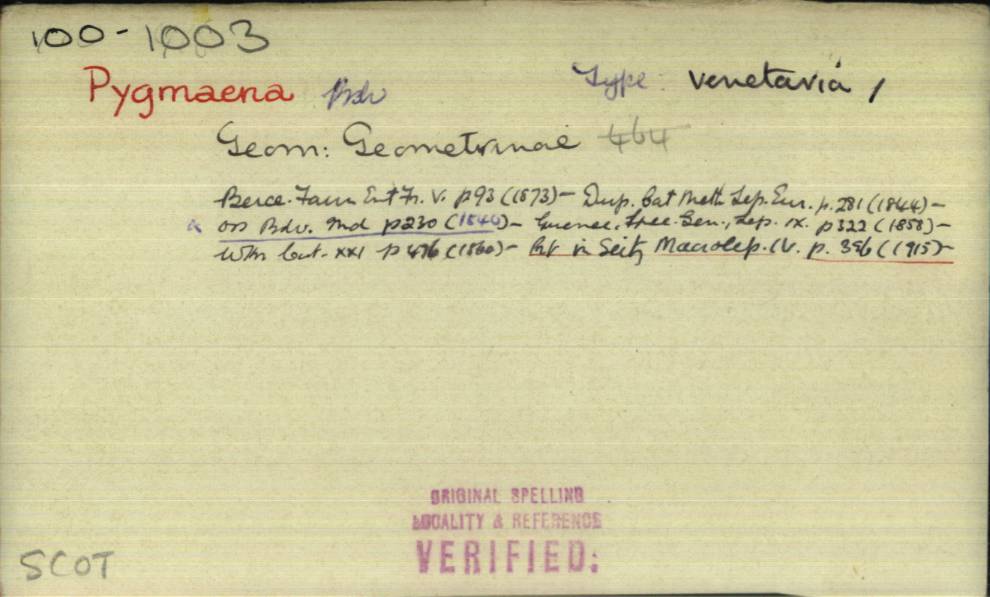 100-1003
Pygmaena Bdv Type: venetaria /
Geom: Geometrinae 464
Berce. Faun Ent Fr. V. p93 (1873)— Dup. Cat Meth Lep. Eur. p. 281 (1844)—
Bdv. Ind p230 (1840)— Guenee. Spec. Gen., Lep. ix. p322 (1858)—
Wkr Cat. xxi p 476 (1860)— Prt in Seitz Macrolep. IV. p. 396 (1915)—
ORIGINAL SPELLING
LOCALITY & REFERENCE
VERIFIED:
SCOT